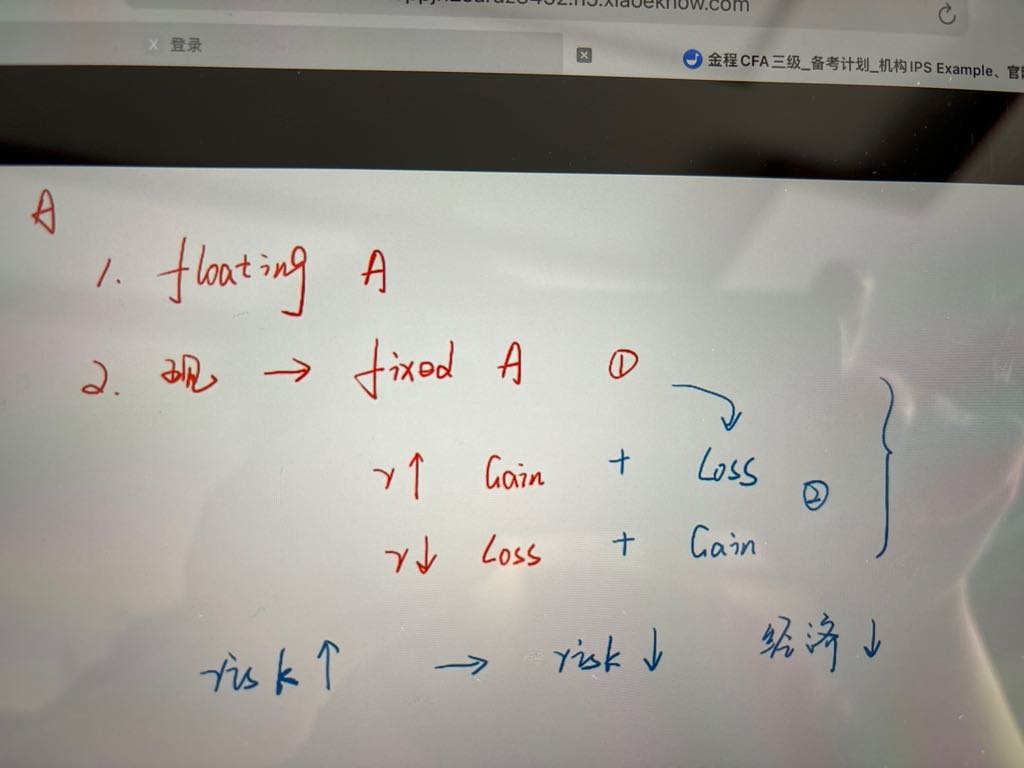 .xiaoeknow.com
X 登录
金程CFA三级_备考计划_机构IPS Example、官
A
1. floating A
2. 现 → fixed A ①
r↑ Gain + Loss
②
r↓ Loss + Gain
risk↑ → risk↓ 经济↓